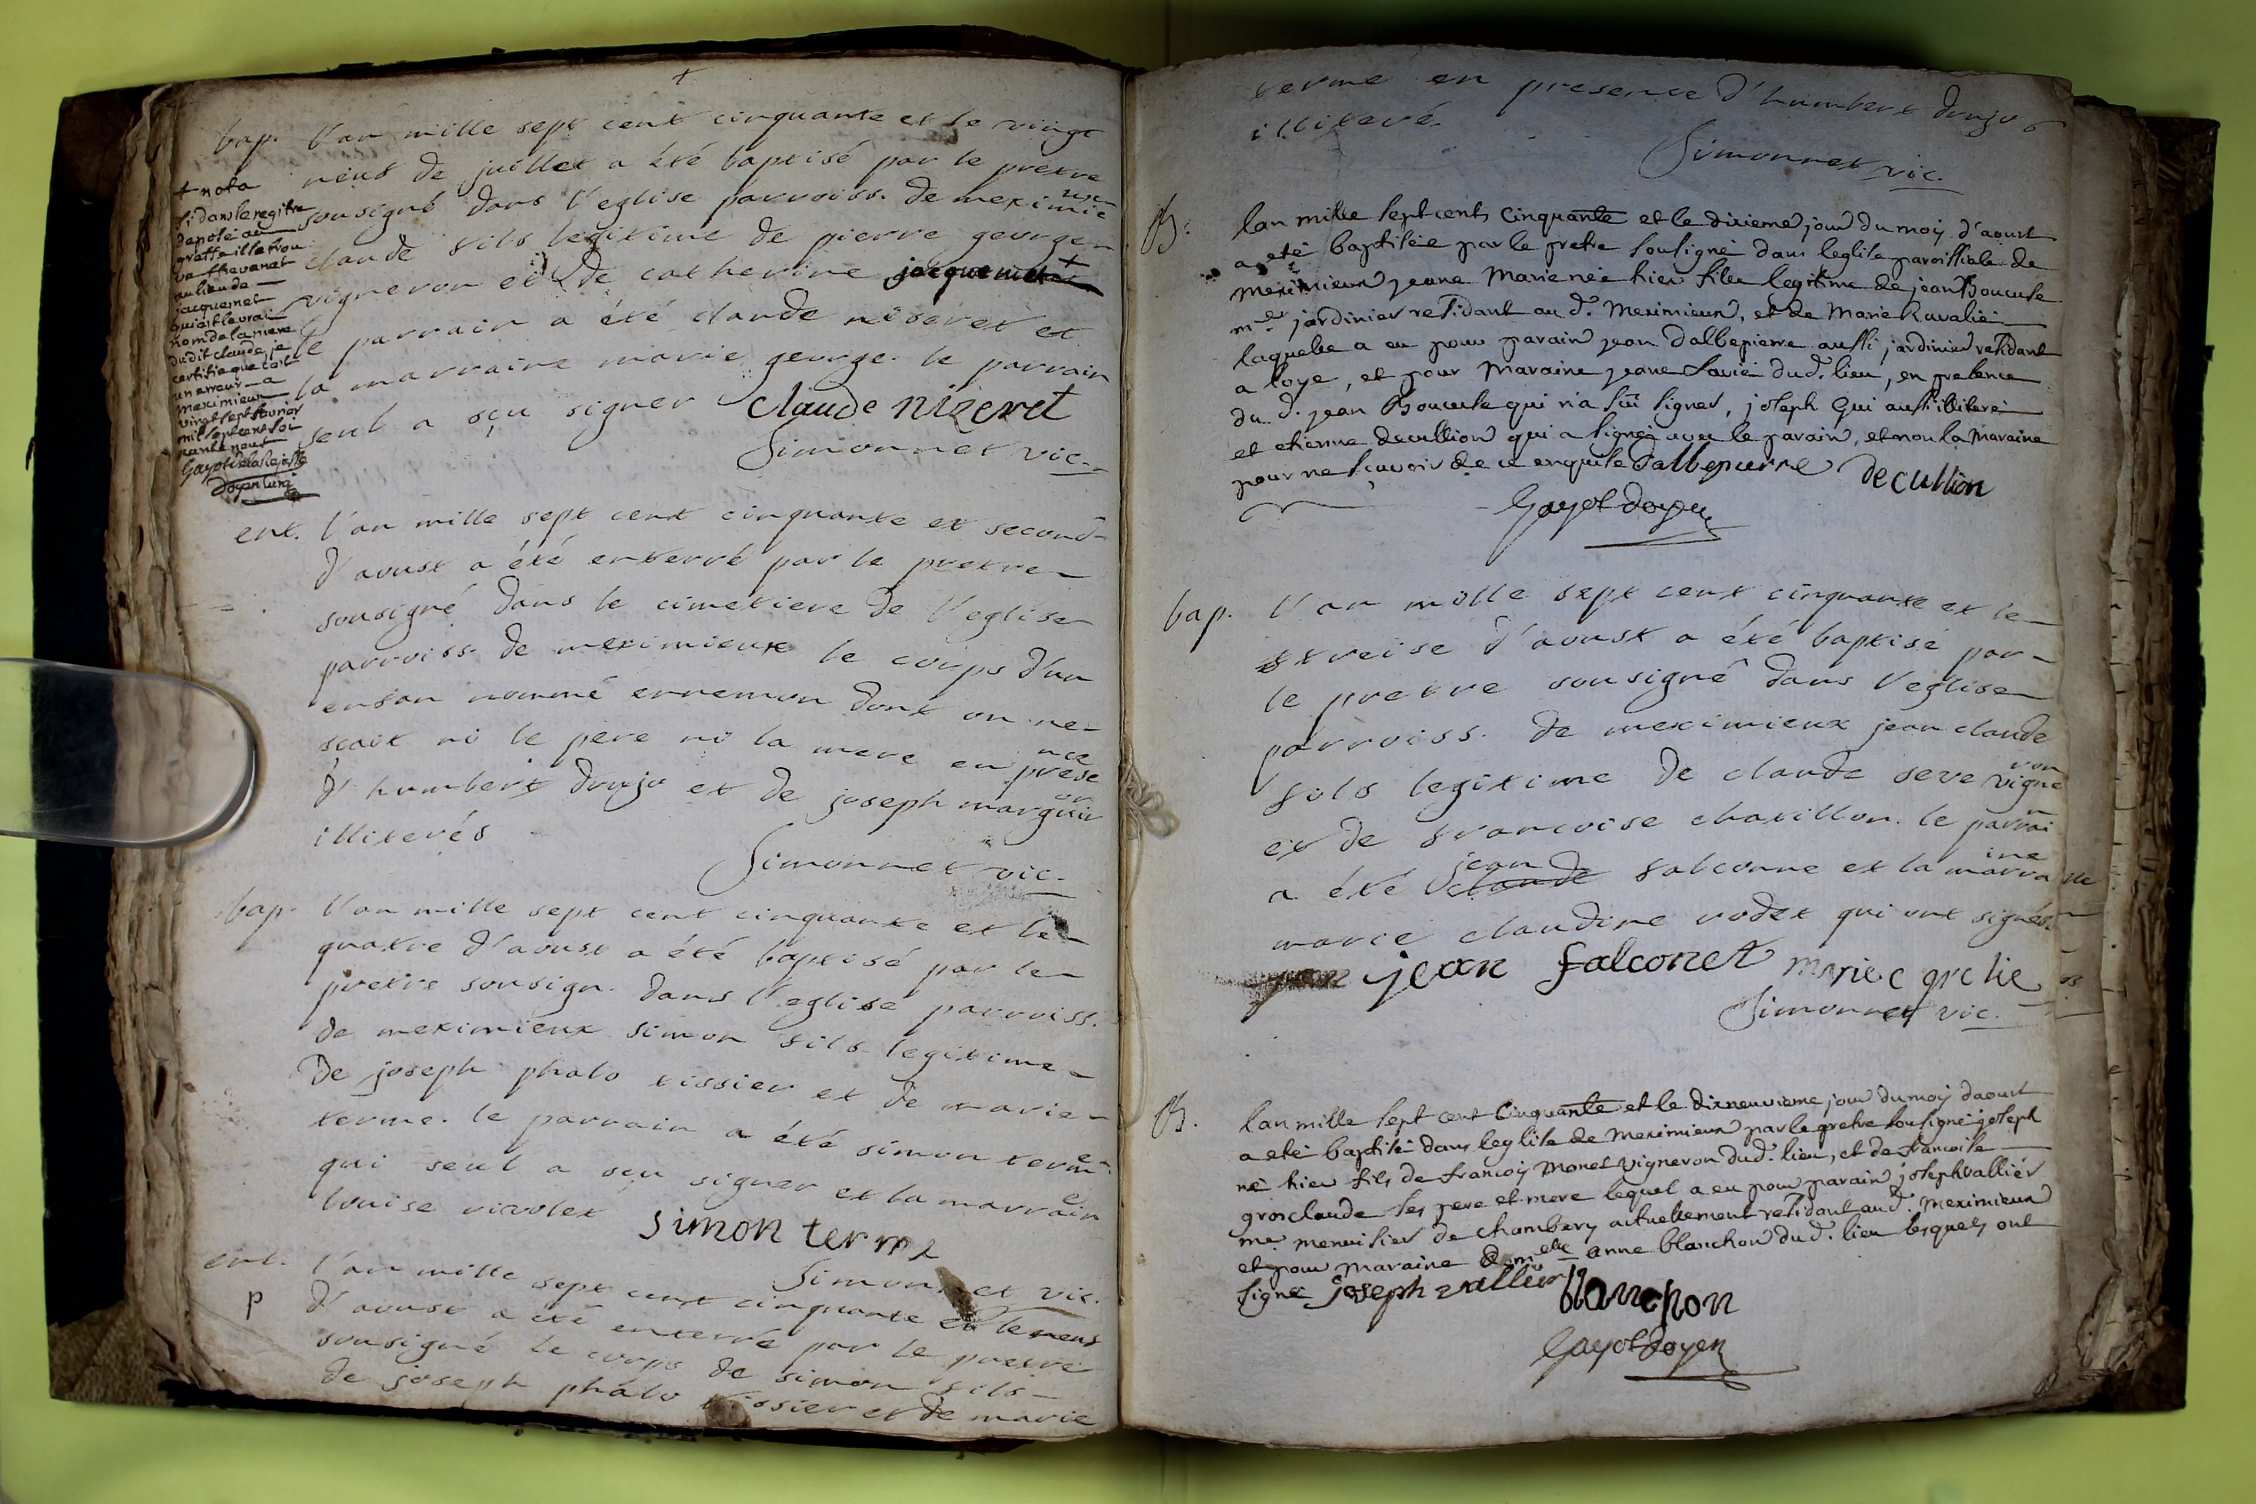 +
bap. l'an mille sept cent cinquante et le vingt
neuf de juillet a été baptisé par le pretre
sousigné dans l'eglise parroiss. de meximieux
claude fils legitime de pierre george
vigneron et de catherine jacquemet +
le parrain a été claude niseret et
la marraine marie george. le parrain
seul a sçu signer claude nizeret
Simonnet vic.
+ nota
si dans le regitre
deposé au
greffe il se trou
ve thevenet
au lieu de
jacquemet
qui est le vrai
nom de la mere
du dit claude, je
certifie que c'est
un erreur a
meximieux
vingt sept fevrier
mil sept cent soi
xante neuf
Gayot
Doyen curé
ent. l'an mille sept cent cinquante et second
d'aoust a été enterré par le pretre
sousigné dans le cimetiere de l'eglise
parroiss. de meximieux le corps d'un
enfan nommé ennemon dont on ne
sçait ni le pere ni la mere en presence
d'humbert doujo et de joseph marguin
illiterés
Simonnet vic.
bap. l'an mille sept cent cinquante et le
quatre d'aoust a été baptisé par le
pretre sousign. dans l'eglise parroiss.
de meximieux simon fils legitime
De joseph phalo tissier et de marie
terme. le parrain a été simon terme
qui seul a sçu signer et la marraine
louise nivolet simon terme
Simonnet vic.
ent. l'an mille sept cent cinquante et le neuf
p d'aoust a été enterré par le pretre
sousigné le corps de simon fils
de joseph phalo tissier et de marie
terme en presence d'humbert doujo
illiteré.
Simonnet vic.
B. lan mille sept cents cinquante et le dixieme jour du moy d'aoust
a eté baptisée par le pretre sousigné dans leglise paroissiale de
meximieux jeane Marie neé hier fille legitime de jean Boucule
me jardinier residant au d. Meximieux, et de Marie Ravalié
laquelle a eu pour parain jean Dalbepierre aussi jardinier residant
a loye, et pour Maraine jeane savié du d. lieu, en presence
du d. jean Boucule qui n'a sçu signer, joseph Gui aussi illiteré
et etienne decullion qui a signé avec le parain, et non la Maraine
pour ne sçavoir de ce enquise Dalbepierre Decullion
Gayot doyen
bap. l'an mille sept cent cinquante et le
treise d'aoust a été baptisé par
le pretre sousigné dans l'eglise
parroiss. de meximieux jean claude
fils legitime de claude seve vigneron
et de francoise chatillon. le parrain
a été jean falconne et la marraine
marie claudine rodet qui ont signés.
jean falconet marie c grelie
Simonnet vic.
B. lan mille sept cent Cinquante et le dixneuvieme jour du moy daoust
a eté baptisé dans leglise de Meximieux par le pretre sousigné joseph
né hier fils de françois Monet vigneron du d. lieu, et de francoise
grosclaude ses pere et mere lequel a eu pour parain joseph vallier
me menuisier de chambery actuellement residant au d. meximieux
et pour maraine delle anne blanchon du d. lieu lesquels ont
signé joseph vallier blanchon
Gayot Doyen